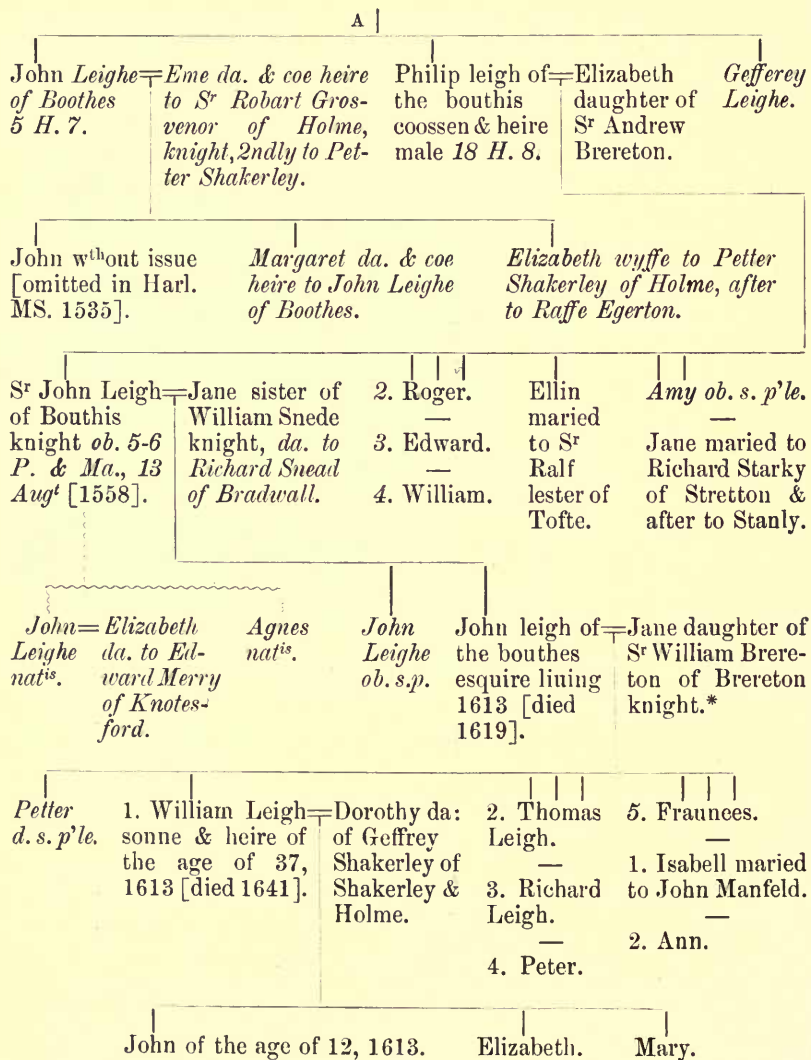 A
John Leighe
of Boothes
5 H. 7.
Eme da. & coe heire
to Sʳ Robart Gros-
venor of Holme,
knight, 2ndly to Pet-
ter Shakerley.
Philip leigh of
the bouthis
coossen & heire
male 18 H. 8.
Elizabeth
daughter of
Sʳ Andrew
Brereton.
Gefferey
Leighe.
John wᵗʰout issue
[omitted in Harl.
MS. 1535].
Margaret da. & coe
heire to John Leighe
of Boothes.
Elizabeth wyffe to Petter
Shakerley of Holme, after
to Raffe Egerton.
Sʳ John Leigh
of Bouthis
knight ob. 5-6
P. & Ma., 13
Augᵗ [1558].
Jane sister of
William Snede
knight, da. to
Richard Snead
of Bradwall.
2. Roger.
—
3. Edward.
—
4. William.
Ellin
maried
to Sʳ
Ralf
lester of
Tofte.
Amy ob. s. p'le.
—
Jane maried to
Richard Starky
of Stretton &
after to Stanly.
John
Leighe
natⁱˢ.
Elizabeth
da. to Ed-
ward Merry
of Knotes-
ford.
Agnes
natⁱˢ.
John
Leighe
ob. s.p.
John leigh of
the bouthes
esquire liuing
1613 [died
1619].
Jane daughter of
Sʳ William Brere-
ton of Brereton
knight.*
Petter
d. s. p'le.
1. William Leigh
sonne & heire of
the age of 37,
1613 [died 1641].
Dorothy da:
of Geffrey
Shakerley of
Shakerley &
Holme.
2. Thomas
Leigh.
—
3. Richard
Leigh.
—
4. Peter.
5. Fraunces.
—
1. Isabell maried
to John Manfeld.
—
2. Ann.
John of the age of 12, 1613.
Elizabeth.
Mary.